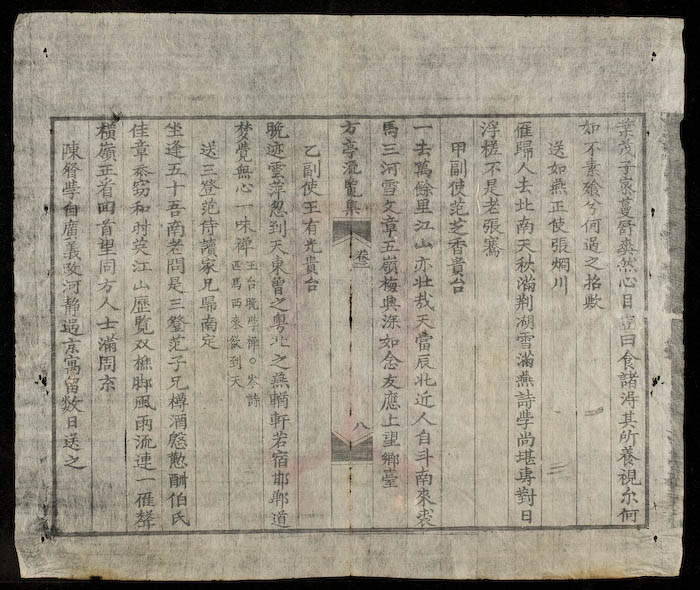 葉茂子裹蔓舒桀然心目豈曰食諸淂其所養視尔何
如不素飧兮何過之招歟
送如燕正使張烱川
雁歸人去北南天秋滿荆湖雪滿燕詩學尚堪専對日
浮槎不是老張騫
甲副使范芝香貴台
一去萬餘里江山亦壮哉天當辰北近人自斗南來裘
馬三河雪文章五嶺梅興深如念友應上望郷臺
方亭流覧集 卷三 八
乙副使王有光貴台
晩迹雲萍忽到天東曾之粤北之燕輶軒若宿邯鄲道
梦覺無心一味禅
王台晩學禅○岑詩
匹馬西來欲到天
送三登范侍讀家兄歸南定
坐逢五十吾南老問是三登范子兄樽酒慇懃酬伯氏
佳章忝窃和时英江山歷覧双樵脚風雨流連一雁聲
横嶺正首回首望同方人士滿周京
陳督學自廣義改河静過京寓留数日送之